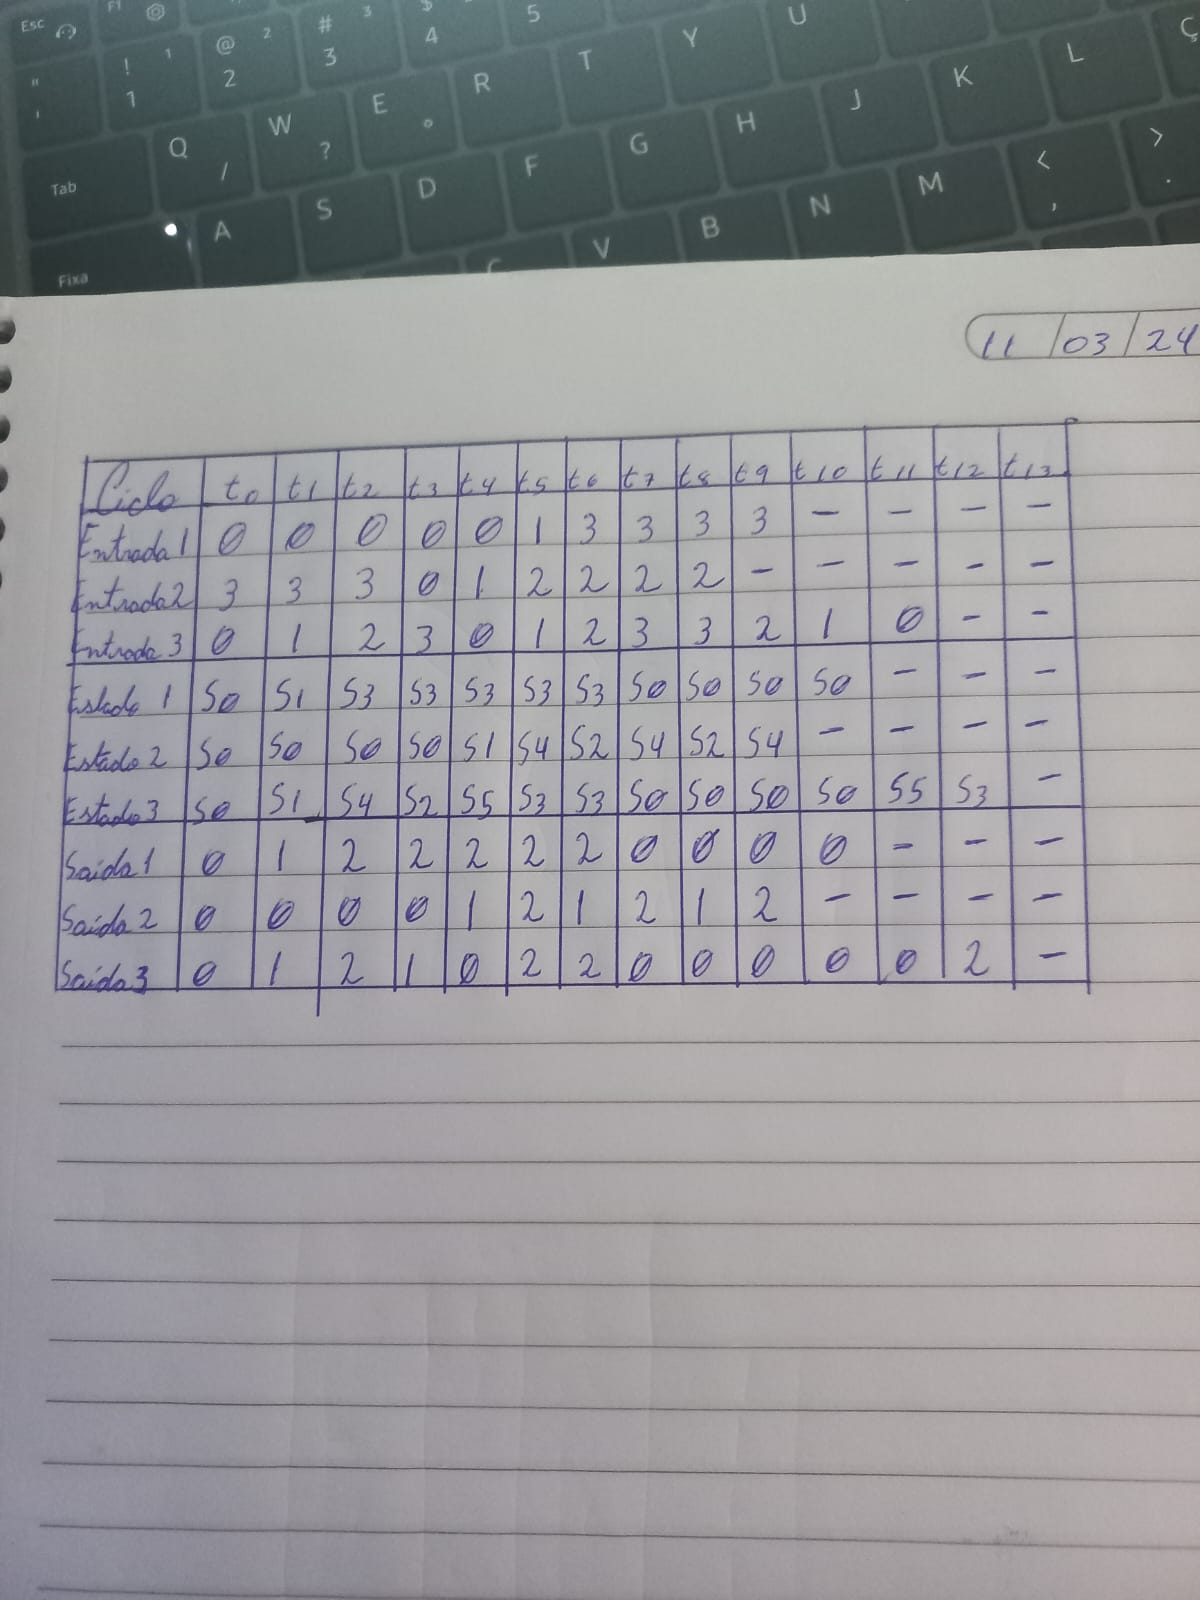 Esc F1 3 $ 5 U Ç
" ! 1 @ 2 # 3 4 T Y J K L
' 1 2 3 E R G H M < >
Tab Q / W ? ° D F N , .
Fixa A S C V B
11/03/24
Ciclo t0 t1 t2 t3 t4 t5 t6 t7 t8 t9 t10 t11 t12 t13
Entrada 1 0 0 0 0 0 1 3 3 3 3 - - - -
Entrada 2 3 3 3 0 1 2 2 2 2 - - - - -
Entrada 3 0 1 2 3 0 1 2 3 3 2 1 0 - -
Estado 1 S0 S1 S3 S3 S3 S3 S3 S0 S0 S0 S0 - - -
Estado 2 S0 S0 S0 S0 S1 S4 S2 S4 S2 S4 - - - -
Estado 3 S0 S1 S4 S2 S5 S3 S3 S0 S0 S0 S0 S5 S3 -
Saida 1 0 1 2 2 2 2 2 0 0 0 0 - - -
Saida 2 0 0 0 0 1 2 1 2 1 2 - - - -
Saida 3 0 1 2 1 0 2 2 0 0 0 0 0 2 -